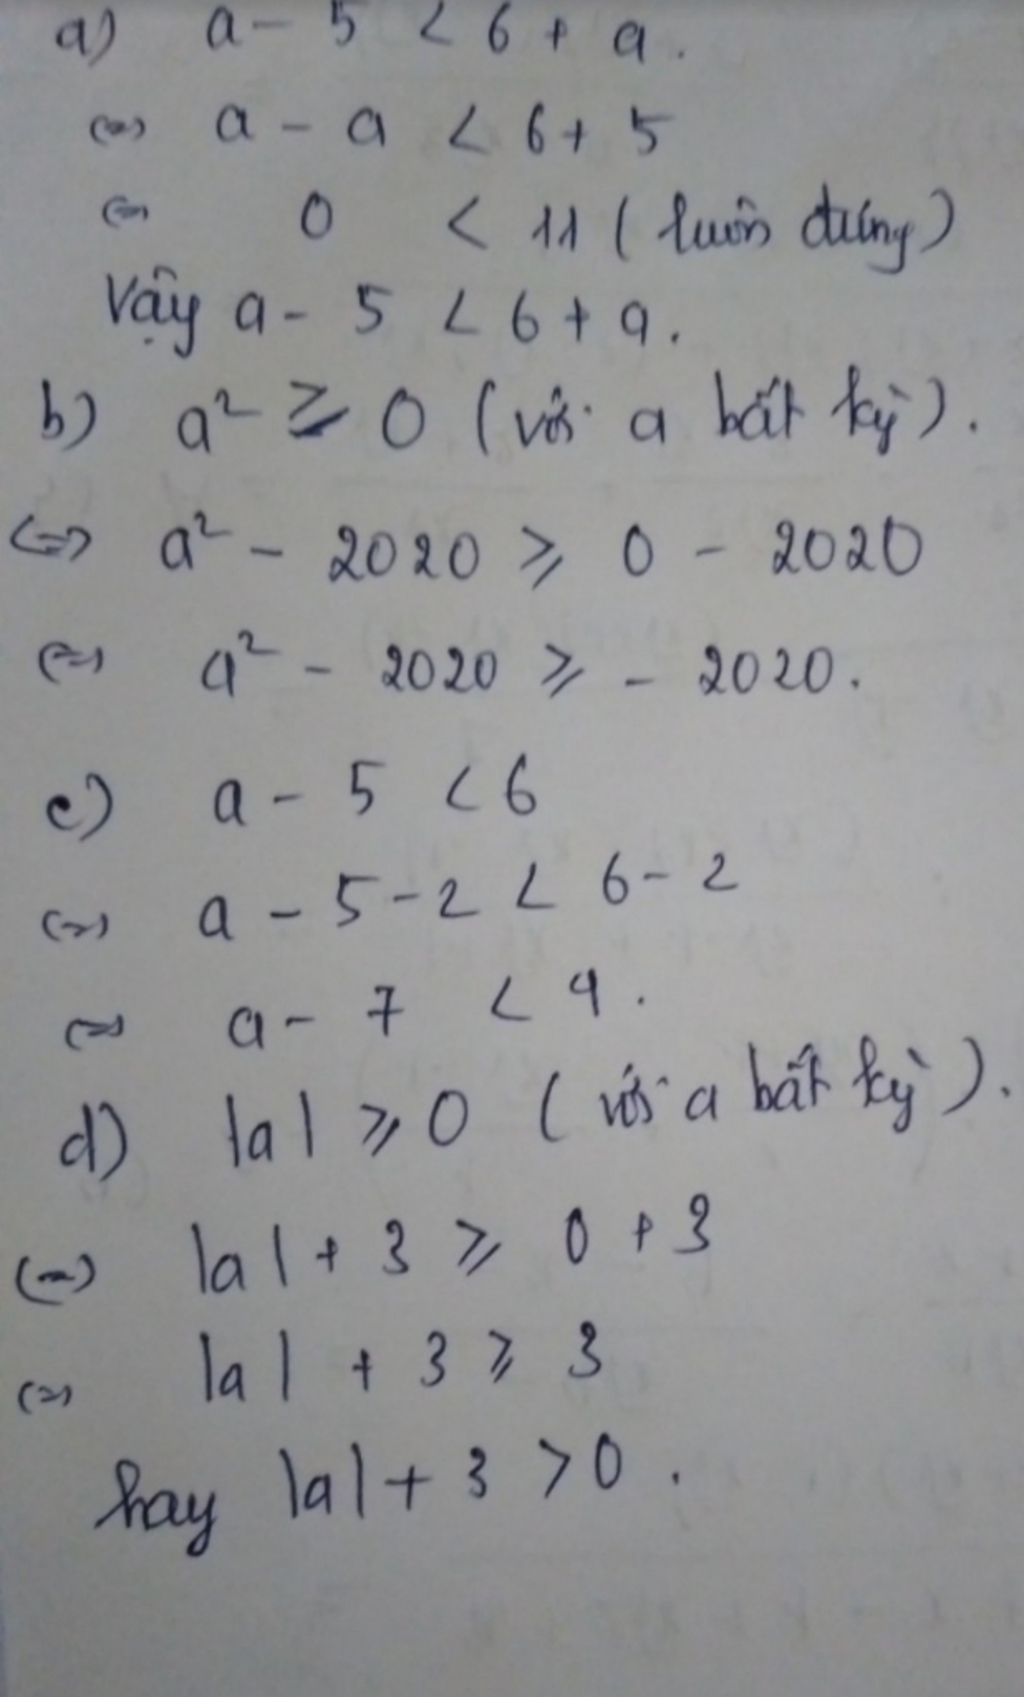 a) a - 5 < 6 + a.
<=> a - a < 6 + 5
<=> 0 < 11 ( luôn đúng)
Vậy a - 5 < 6 + a.
b) a² ≥ 0 ( với a bất kỳ).
<=> a² - 2020 ≥ 0 - 2020
<=> a² - 2020 ≥ - 2020.
c) a - 5 < 6
<=> a - 5 - 2 < 6 - 2
<=> a - 7 < 4.
d) |a| ≥ 0 ( với a bất kỳ).
<=> |a| + 3 ≥ 0 + 3
<=> |a| + 3 ≥ 3
hay |a| + 3 > 0.